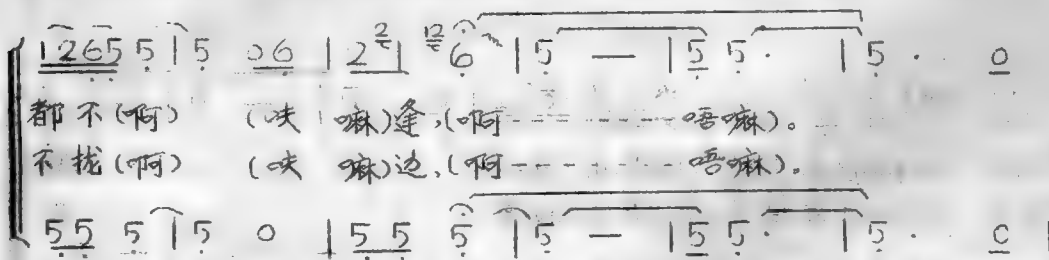 1265 5 | 5 06 | 2 2 1 12 6 | 5 — | 5 5· | 5· 0
都不(啊) (呋嘛)逢,(啊--------唔嘛)。
不拢(啊) (呋嘛)边,(啊--------唔嘛)。
55 5 | 5 0 | 5 5 5 | 5 — | 5 5· | 5· 0